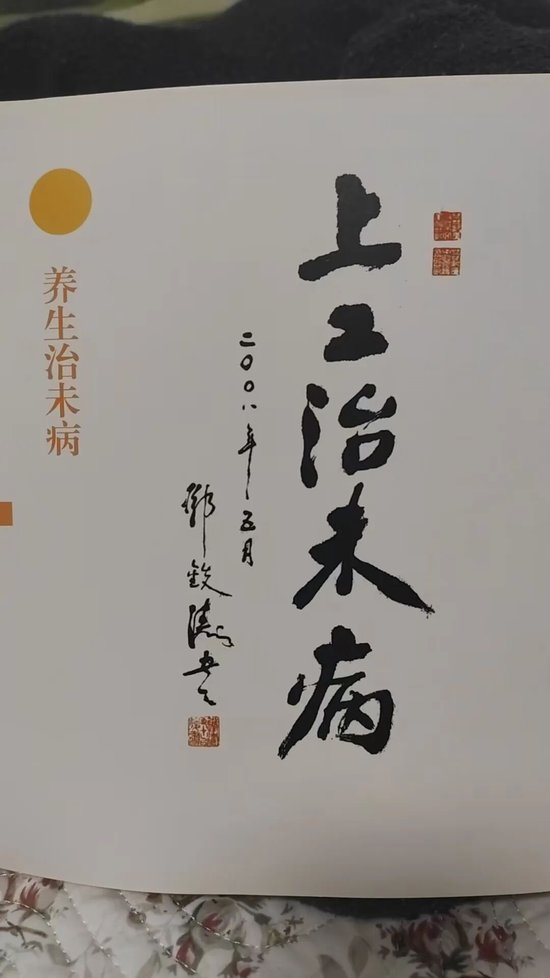 上工治未病
二〇〇八年五月
邓铁涛书
养生治未病